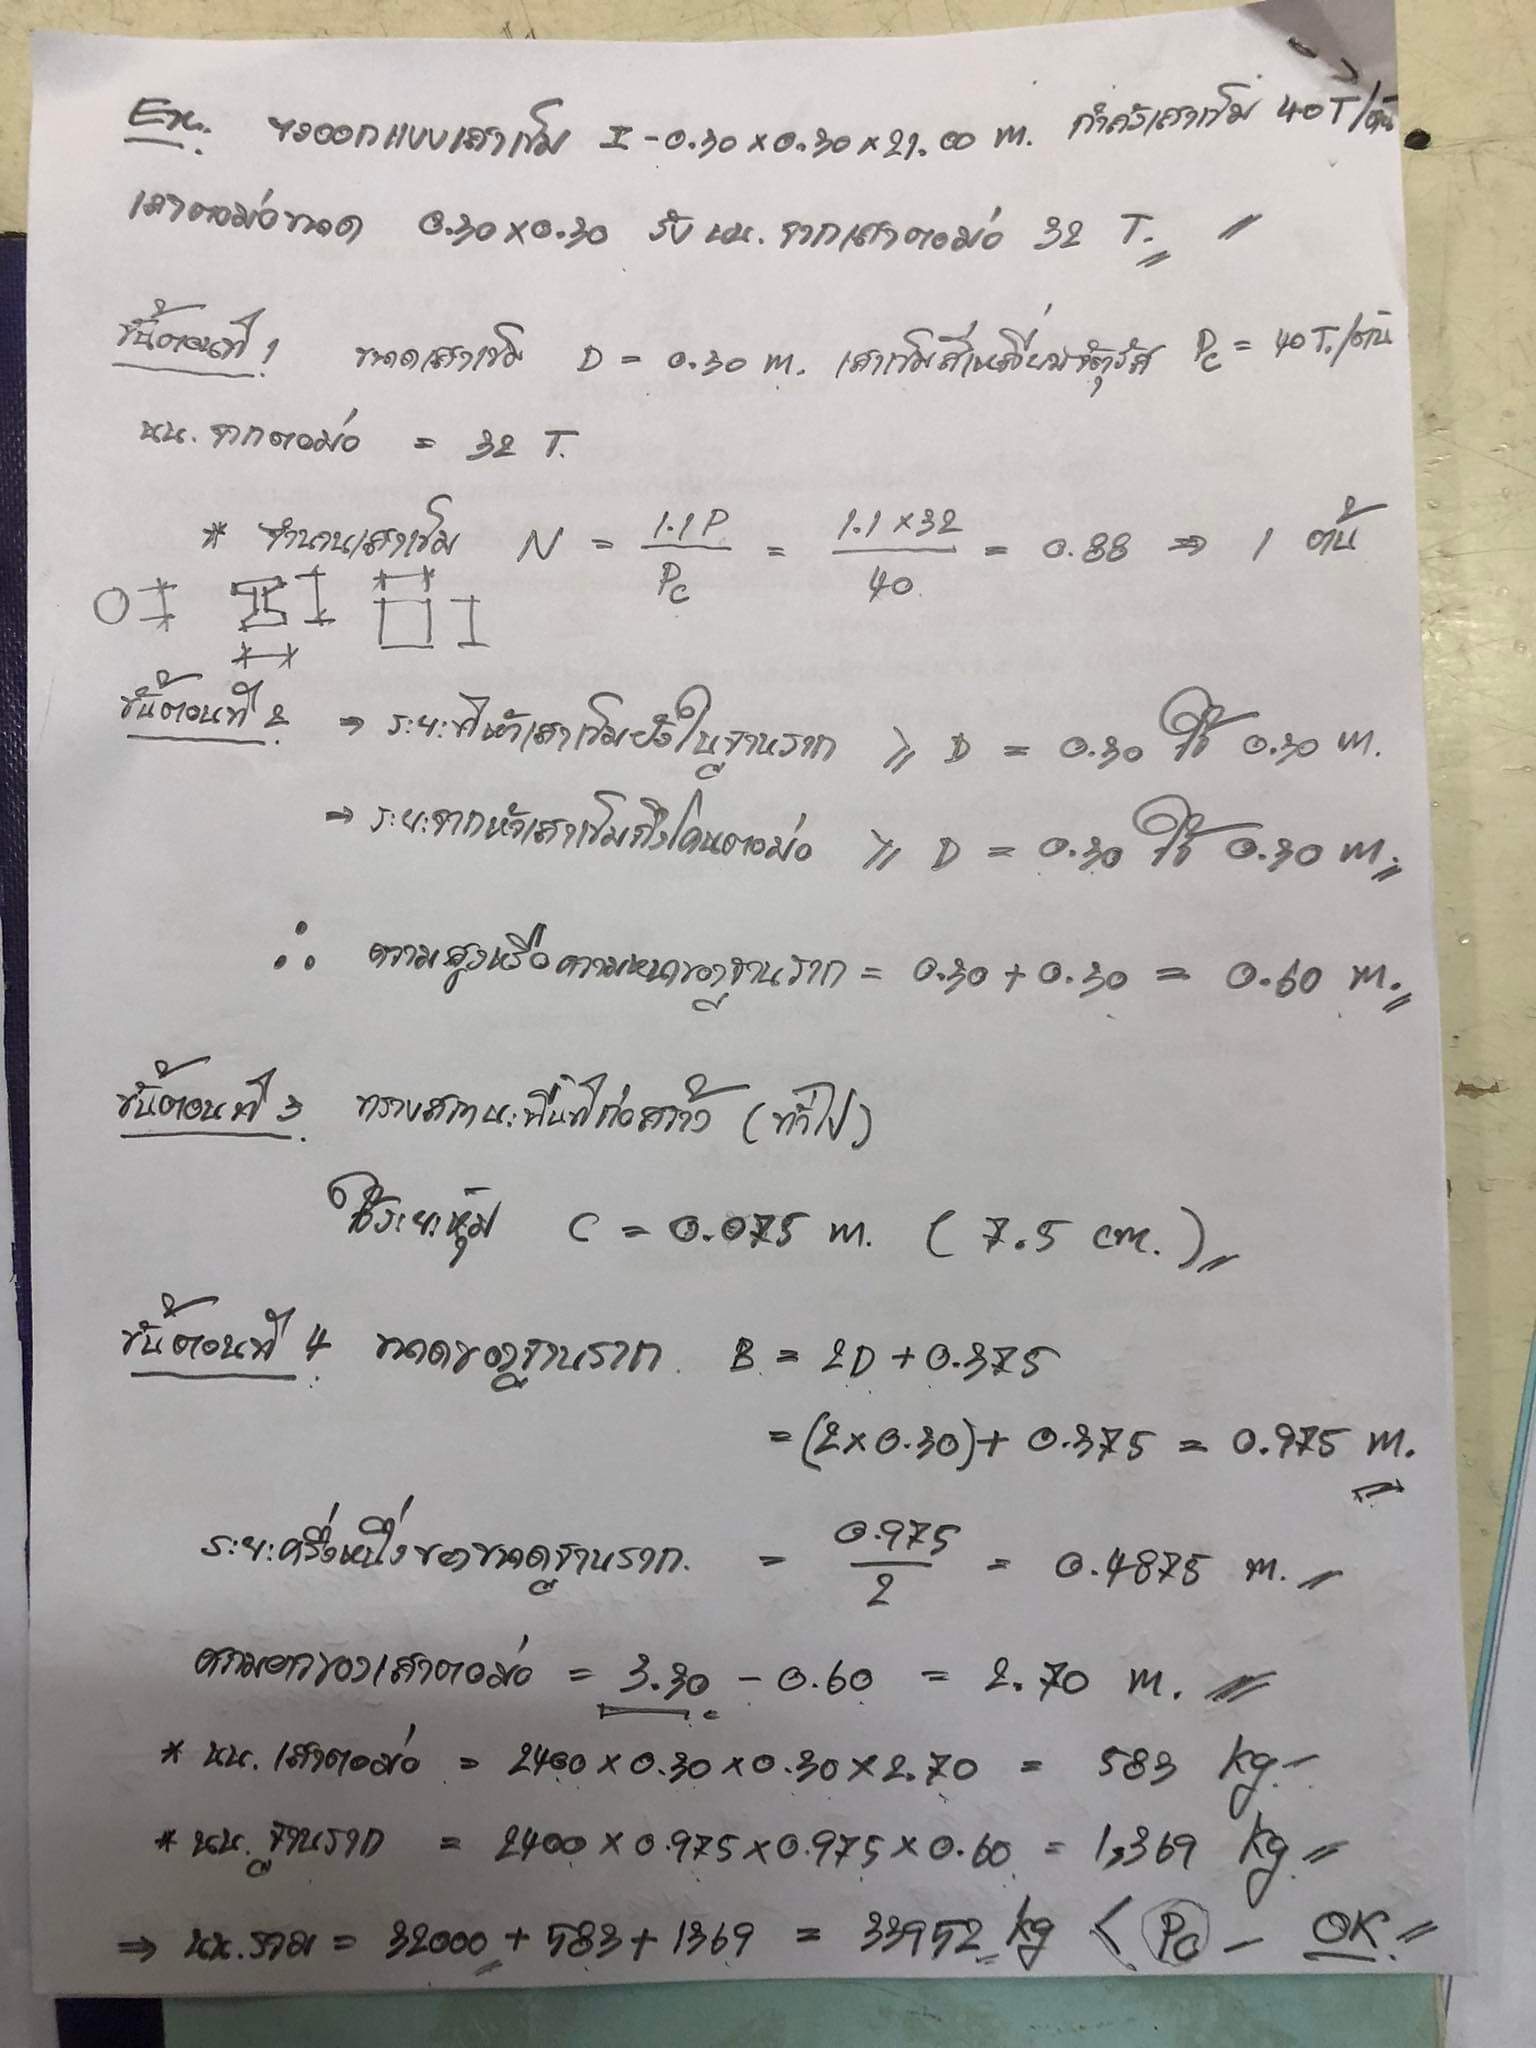 Ex. จงออกแบบเสาเข็ม I-0.30×0.30×21.00 m. กำลังเสาเข็ม 40 T/ต้น
เสาตอม่อขนาด 0.30×0.30 รับ นน. จากเสาตอม่อ 32 T.
ขั้นตอนที่ 1 ขนาดเสาเข็ม D = 0.30 m. เสาเข็มสี่เหลี่ยมจัตุรัส Pc = 40 T./ต้น
นน. จากตอม่อ = 32 T.
* จำนวนเสาเข็ม N = 1.1P/Pc = 1.1×32/40 = 0.88 ⇒ 1 ต้น
ขั้นตอนที่ 2 → ระยะที่หัวเสาเข็มฝังในฐานราก ≥ D = 0.30 ใช้ 0.30 m.
→ ระยะจากหัวเสาเข็มถึงโคนตอม่อ ≥ D = 0.30 ใช้ 0.30 m.
∴ ความสูงหรือความหนาของฐานราก = 0.30 + 0.30 = 0.60 m.
ขั้นตอนที่ 3 ทราบสถานะพื้นที่ก่อสร้าง (ทั่วไป)
ใช้ระยะหุ้ม C = 0.075 m. (7.5 cm.)
ขั้นตอนที่ 4 ขนาดของฐานราก B = 2D + 0.375
= (2×0.30) + 0.375 = 0.975 m.
ระยะครึ่งหนึ่งของขนาดฐานราก = 0.975/2 = 0.4875 m.
ความยาวของเสาตอม่อ = 3.30 - 0.60 = 2.70 m.
* นน. เสาตอม่อ = 2400 × 0.30 × 0.30 × 2.70 = 583 kg
* นน. ฐานราก = 2400 × 0.975 × 0.975 × 0.60 = 1,369 kg
⇒ นน. รวม = 32000 + 583 + 1369 = 33952 kg < Pc - OK